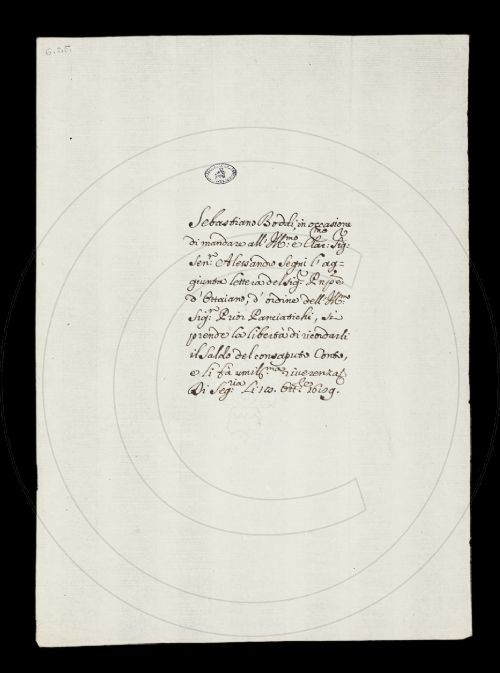 Sebastiano Boddi, in occasione
di mandare all' Ill.mo e Clar.mo Sig:
Sen.r Alessandro Segni l'ag=
giunta lettera del Sig.r Pnpe
d'Ottaiano, d'ordine dell' Ill.mo
Sig.r Prior Panciatichi, si
prende la libertà di ricordarli
il saldo del consaputo Conto,
e li fa umiliss.ma riverenza
Di Seg.ria Li 20. Ott.